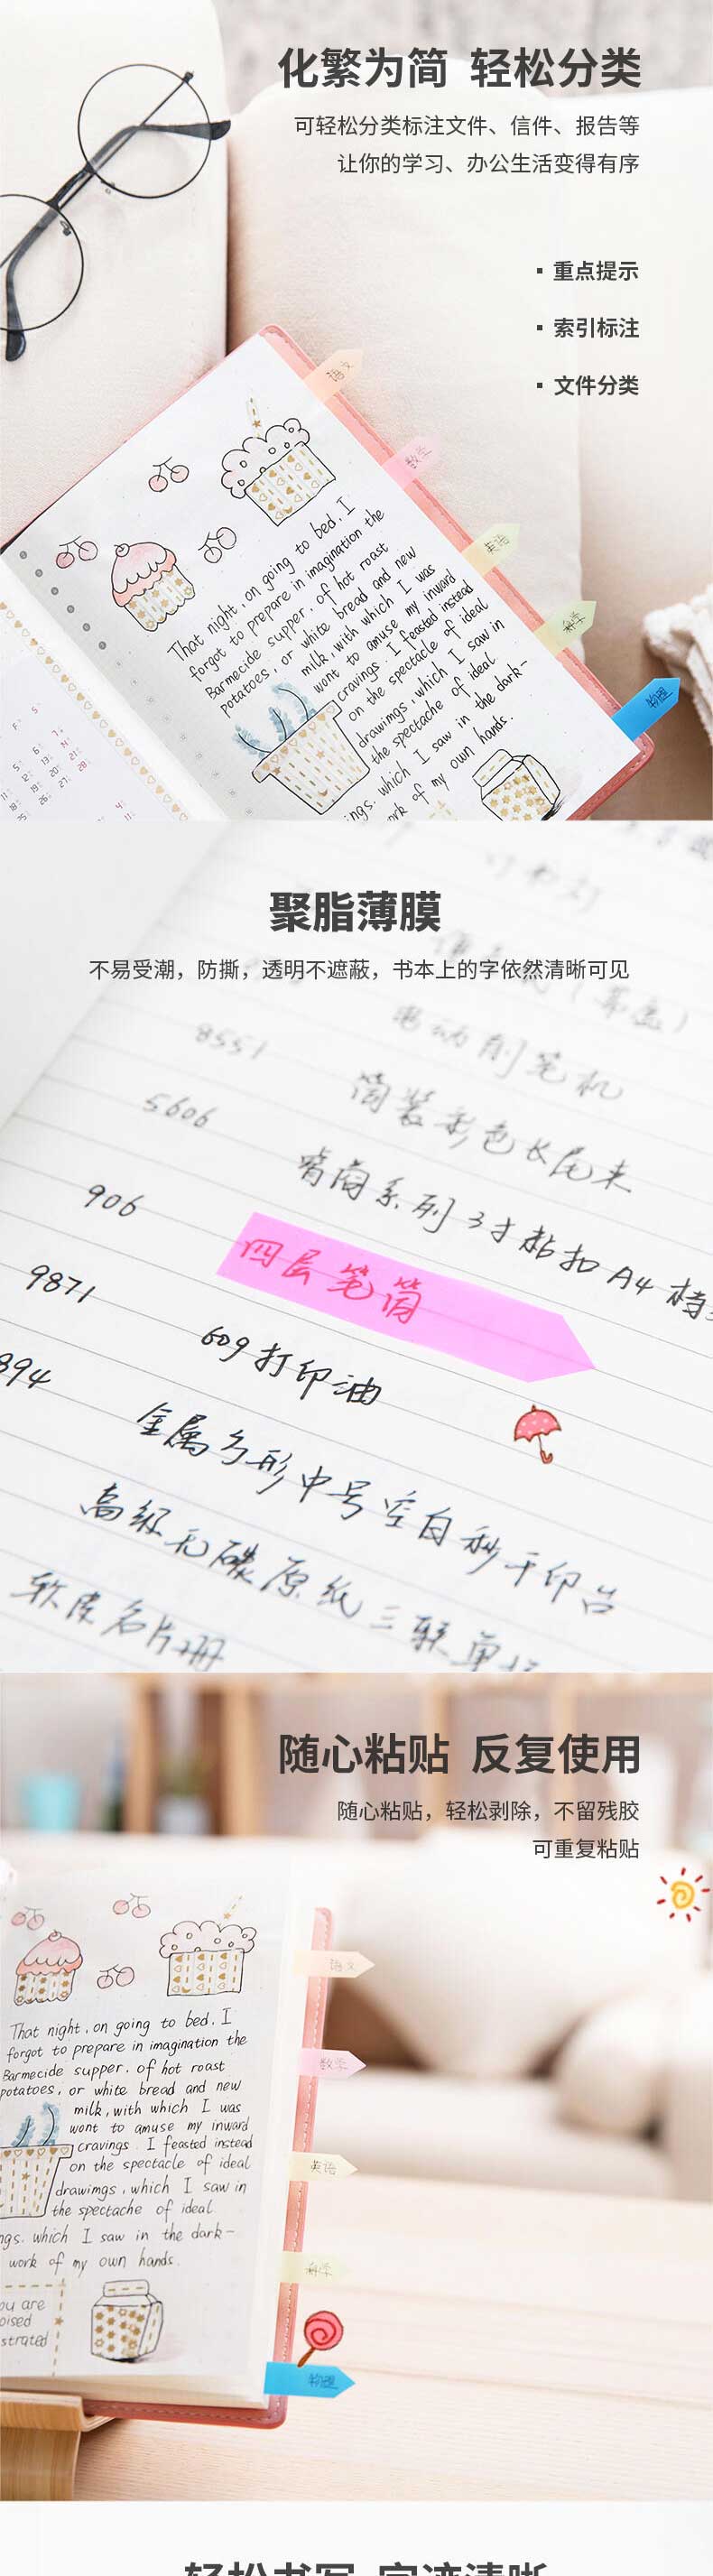 化繁为简 轻松分类
可轻松分类标注文件、信件、报告等
让你的学习、办公生活变得有序
▪ 重点提示
▪ 索引标注
▪ 文件分类
语文
数学
英语
科学
物理
That night, on going to bed. I
forgot to prepare in imagination the
Barmecide supper. of hot roast
potatoes, or white bread and new
milk, with which I was
wont to amuse my inward
cravings. I feasted instead
on the spectacle of ideal
drawimgs, which I saw in
the spectache of ideal
ings. which I saw in the dark-
rk of my own hands.
聚脂薄膜
不易受潮，防撕，透明不遮蔽，书本上的字依然清晰可见
电动削笔机
8551 筒装彩色长尾夹
5606 背商系列 3寸粘扣 A4 档
906 四层笔筒
9871 609打印油
894 金属弓形中号空白秒干印台
高级无碳原纸三联单
软皮名片册
随心粘贴 反复使用
随心粘贴，轻松剥除，不留残胶
可重复粘贴
语文
数学
英语
科学
物理
That night, on going to bed. I
forgot to prepare in imagination the
Barmecide supper. of hot roast
potatoes, or white bread and new
milk, with which I was
wont to amuse my inward
cravings. I feasted instead
on the spectacle of ideal
drawimgs, which I saw in
the spectache of ideal.
ngs. which I saw in the dark-
work of my own hands.
ou are
oised
strated
轻松书写 字迹清晰